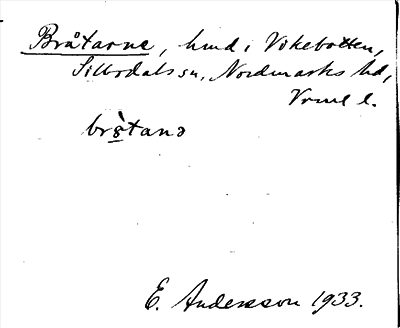 Bråtarne, hmd i Vikebotten,
Silbodals sn, Nordmarks hd,
Vrml l.
bròtanə
E. Andersson 1933.